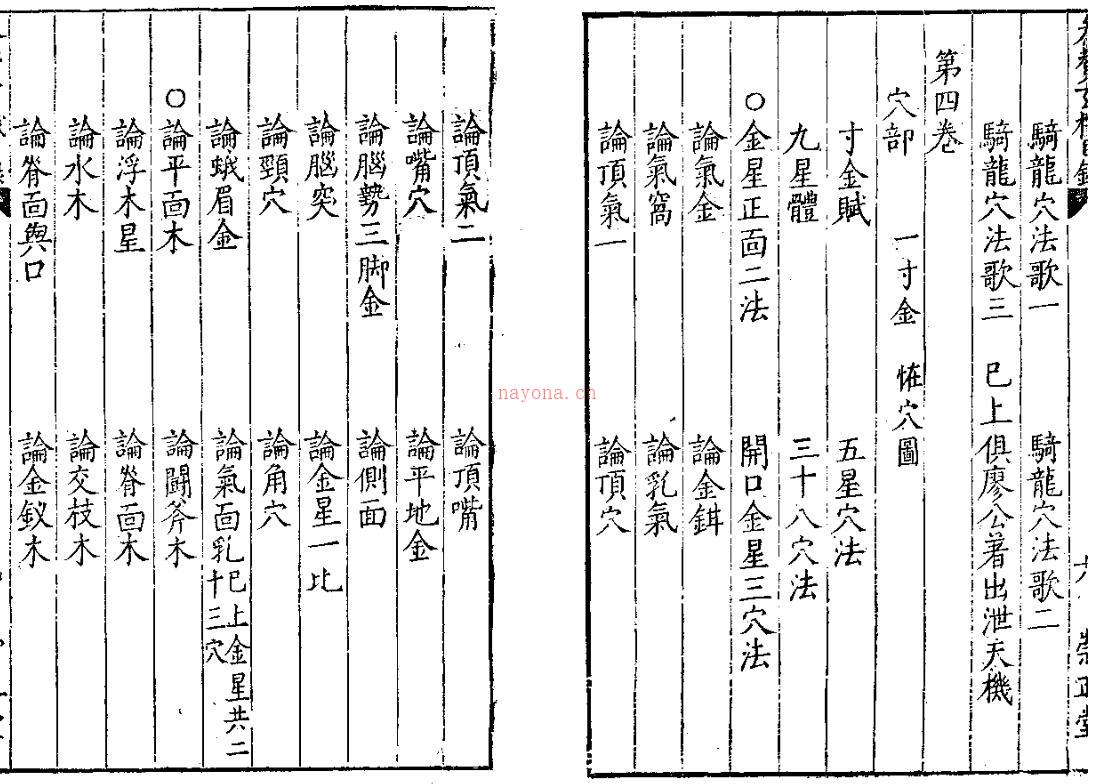 騎龍穴法歌一 騎龍穴法歌二
騎龍穴法歌三 已上俱廖公著出泄天機
第四卷
穴部 一寸金 恠穴圖
寸金賦 五星穴法
九星體 三十八穴法
○金星正面二法 開口金星三穴法
論氣金 論金鉺
論氣窩 論乳氣
論頂氣一 論頂穴
崇正堂
論頂氣二 論頂嘴
論嘴穴 論平地金
論腦勢三脚金 論側面
論腦突 論金星一比
論頸穴 論角穴
論蛾眉金 論氣面乳已上金星共二十三穴
○論平面木 論鬬斧木
論浮木星 論脊面木
論水木 論交枝木
論脊面與口 論金釵木
nayona.cn